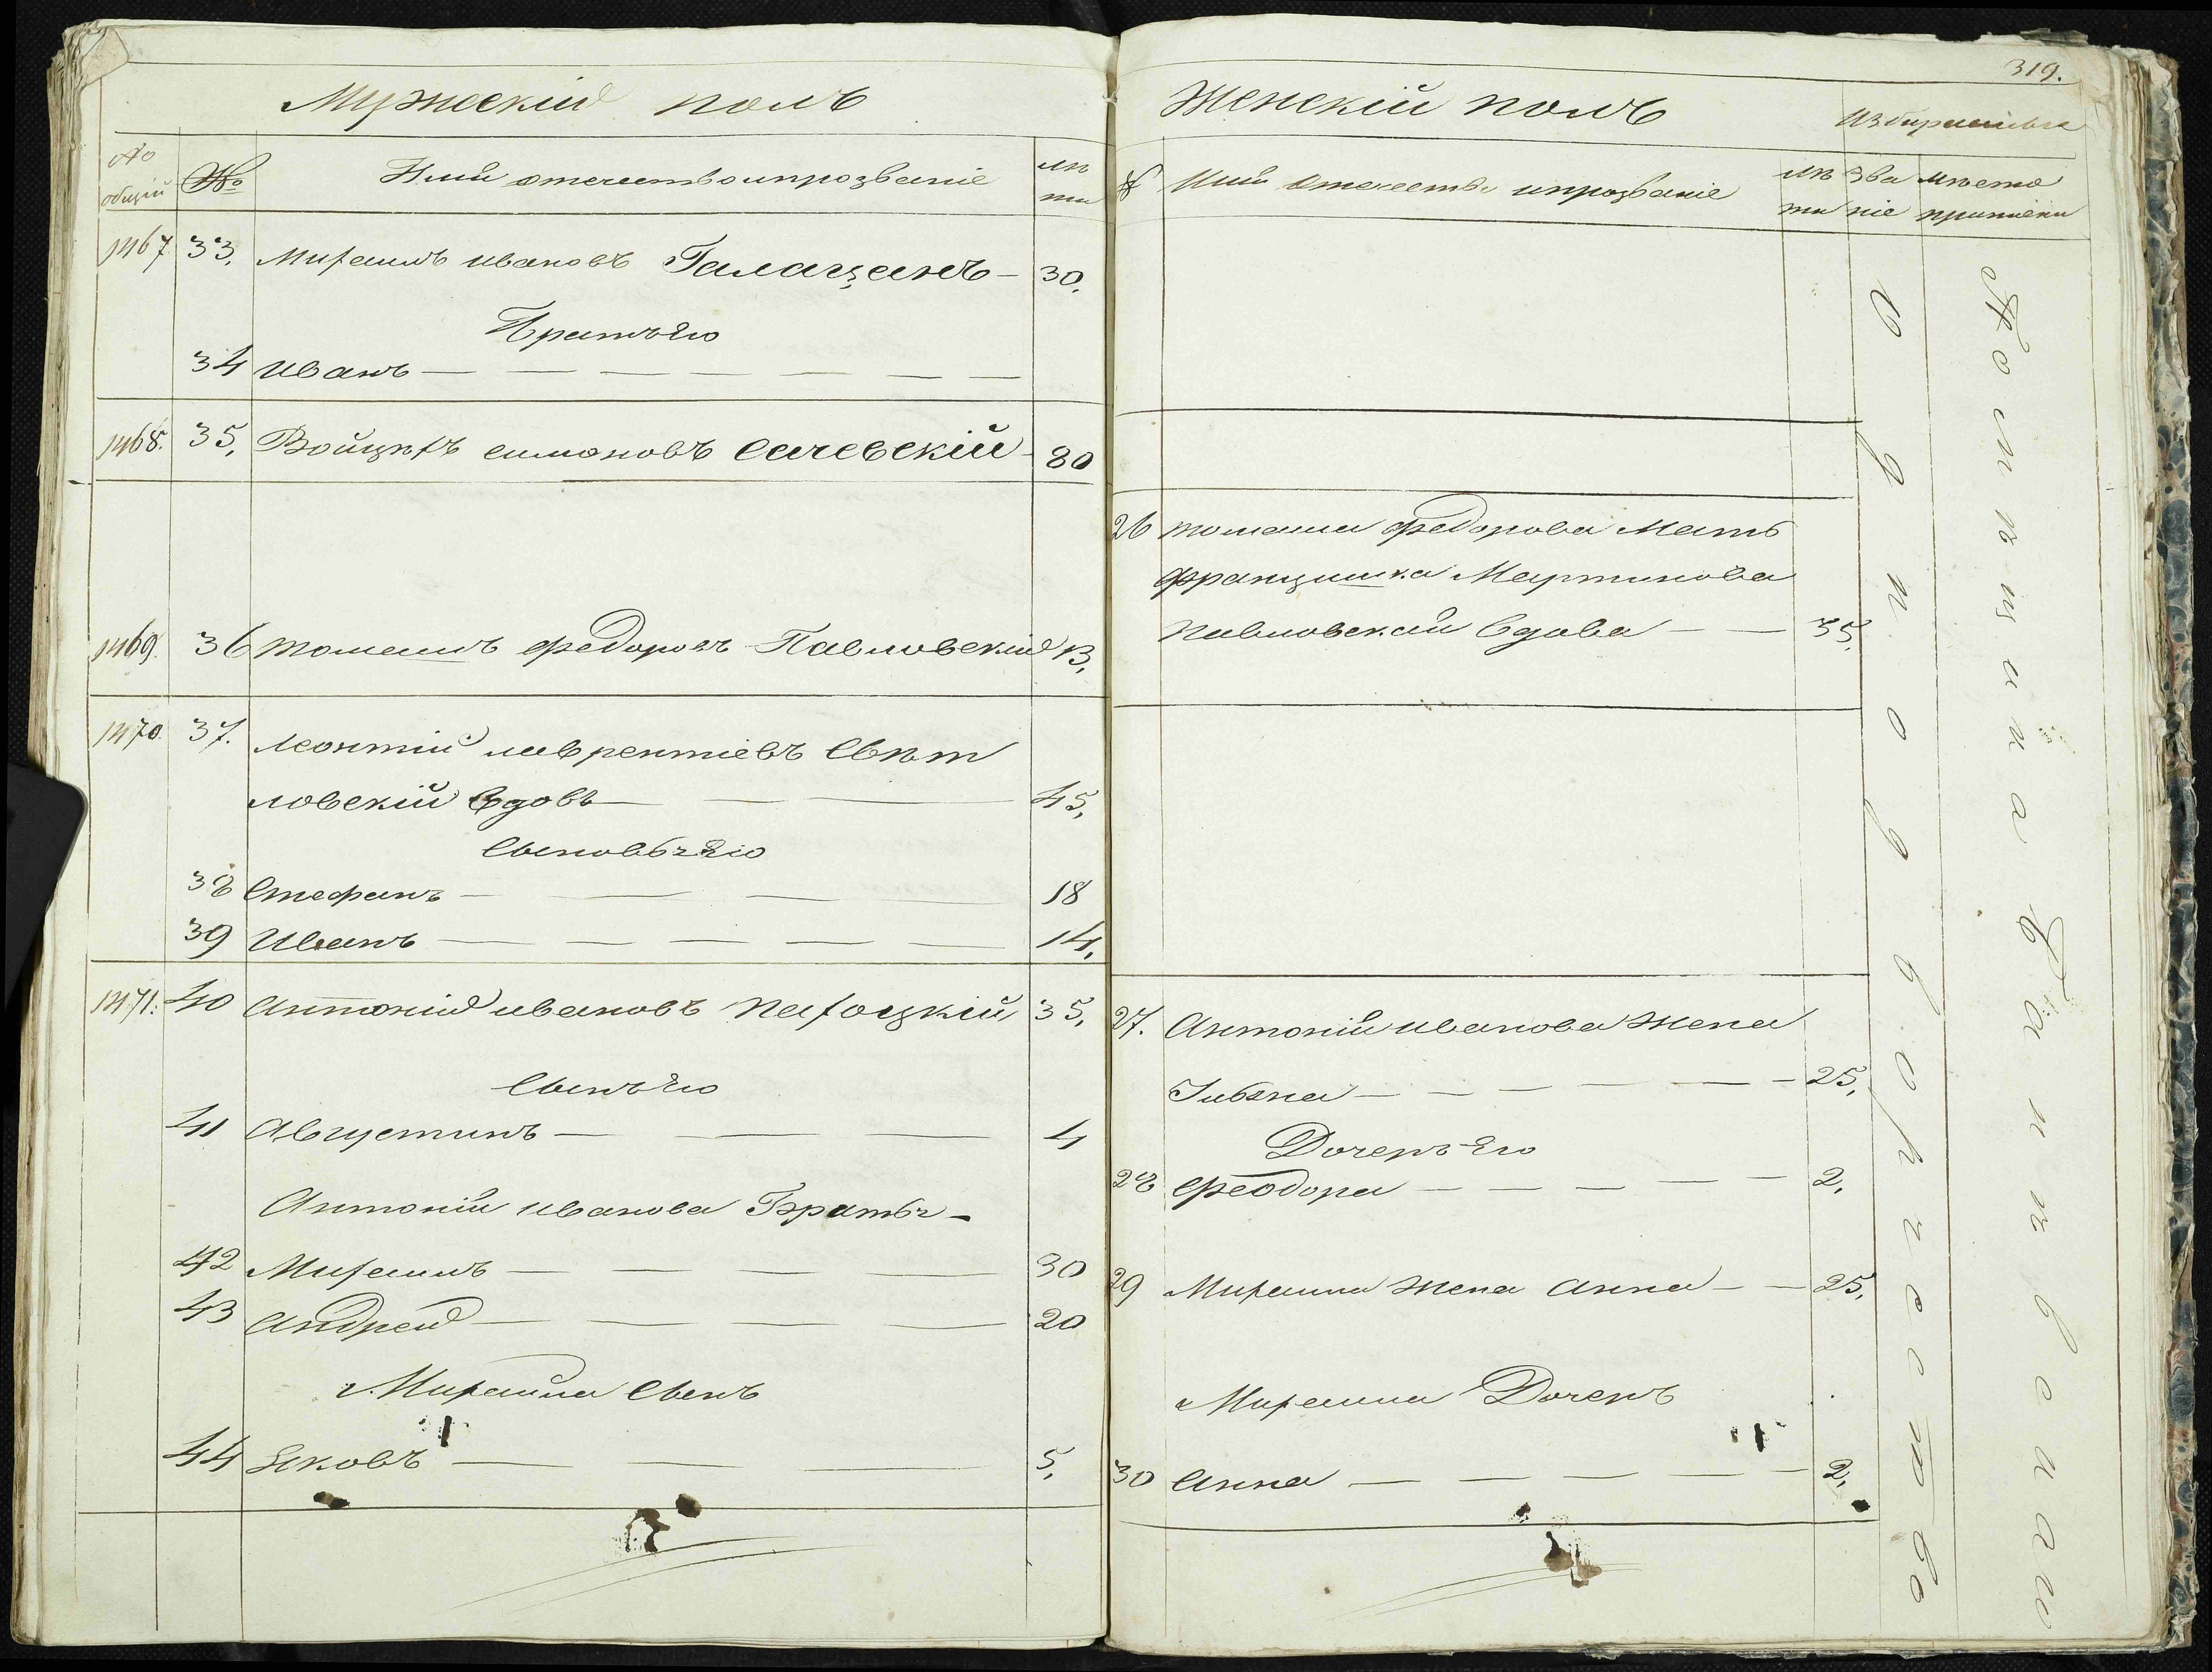 Мужескій полъ
№ общій
№
Имя отечество и прозваніе
лѣта
1467 33. Михаилъ Ивановъ Галагданъ — 30.
Братъ его
34 Иванъ
1468. 35. Войцѣхъ Симоновъ Сачевскій — 80
1469. 36 Томашъ Федоровъ Павловскій 13,
1470. 37. Леонтій Лаврентіевъ Свѣт
ловскій вдовъ — 45,
Сыновья его
38 Стефанъ — 18
39 Иванъ — 14,
1471. 40 Антоній Ивановъ Пахоцкій 35,
Сынъ его
41 Августинъ — 4
Антонія Иванова Братья
42 Михаилъ — 30
43 Андрей — 20
Михаила Сынъ
44 Яковъ — 5,
319.
Женскій полъ
№ Имя отечество и прозваніе
лѣта
Званіе
мѣсто приписки
26 Томаша Федорова Мать
Францишка Мартинова
Павловская вдова — 35.
27. Антонія Иванова Жена
25,
Дочерь его
28 Феодора — 2,
29 Михаила Жена Анна — 25,
Михаила Дочерь
30 Анна — 2,
Однодворчество